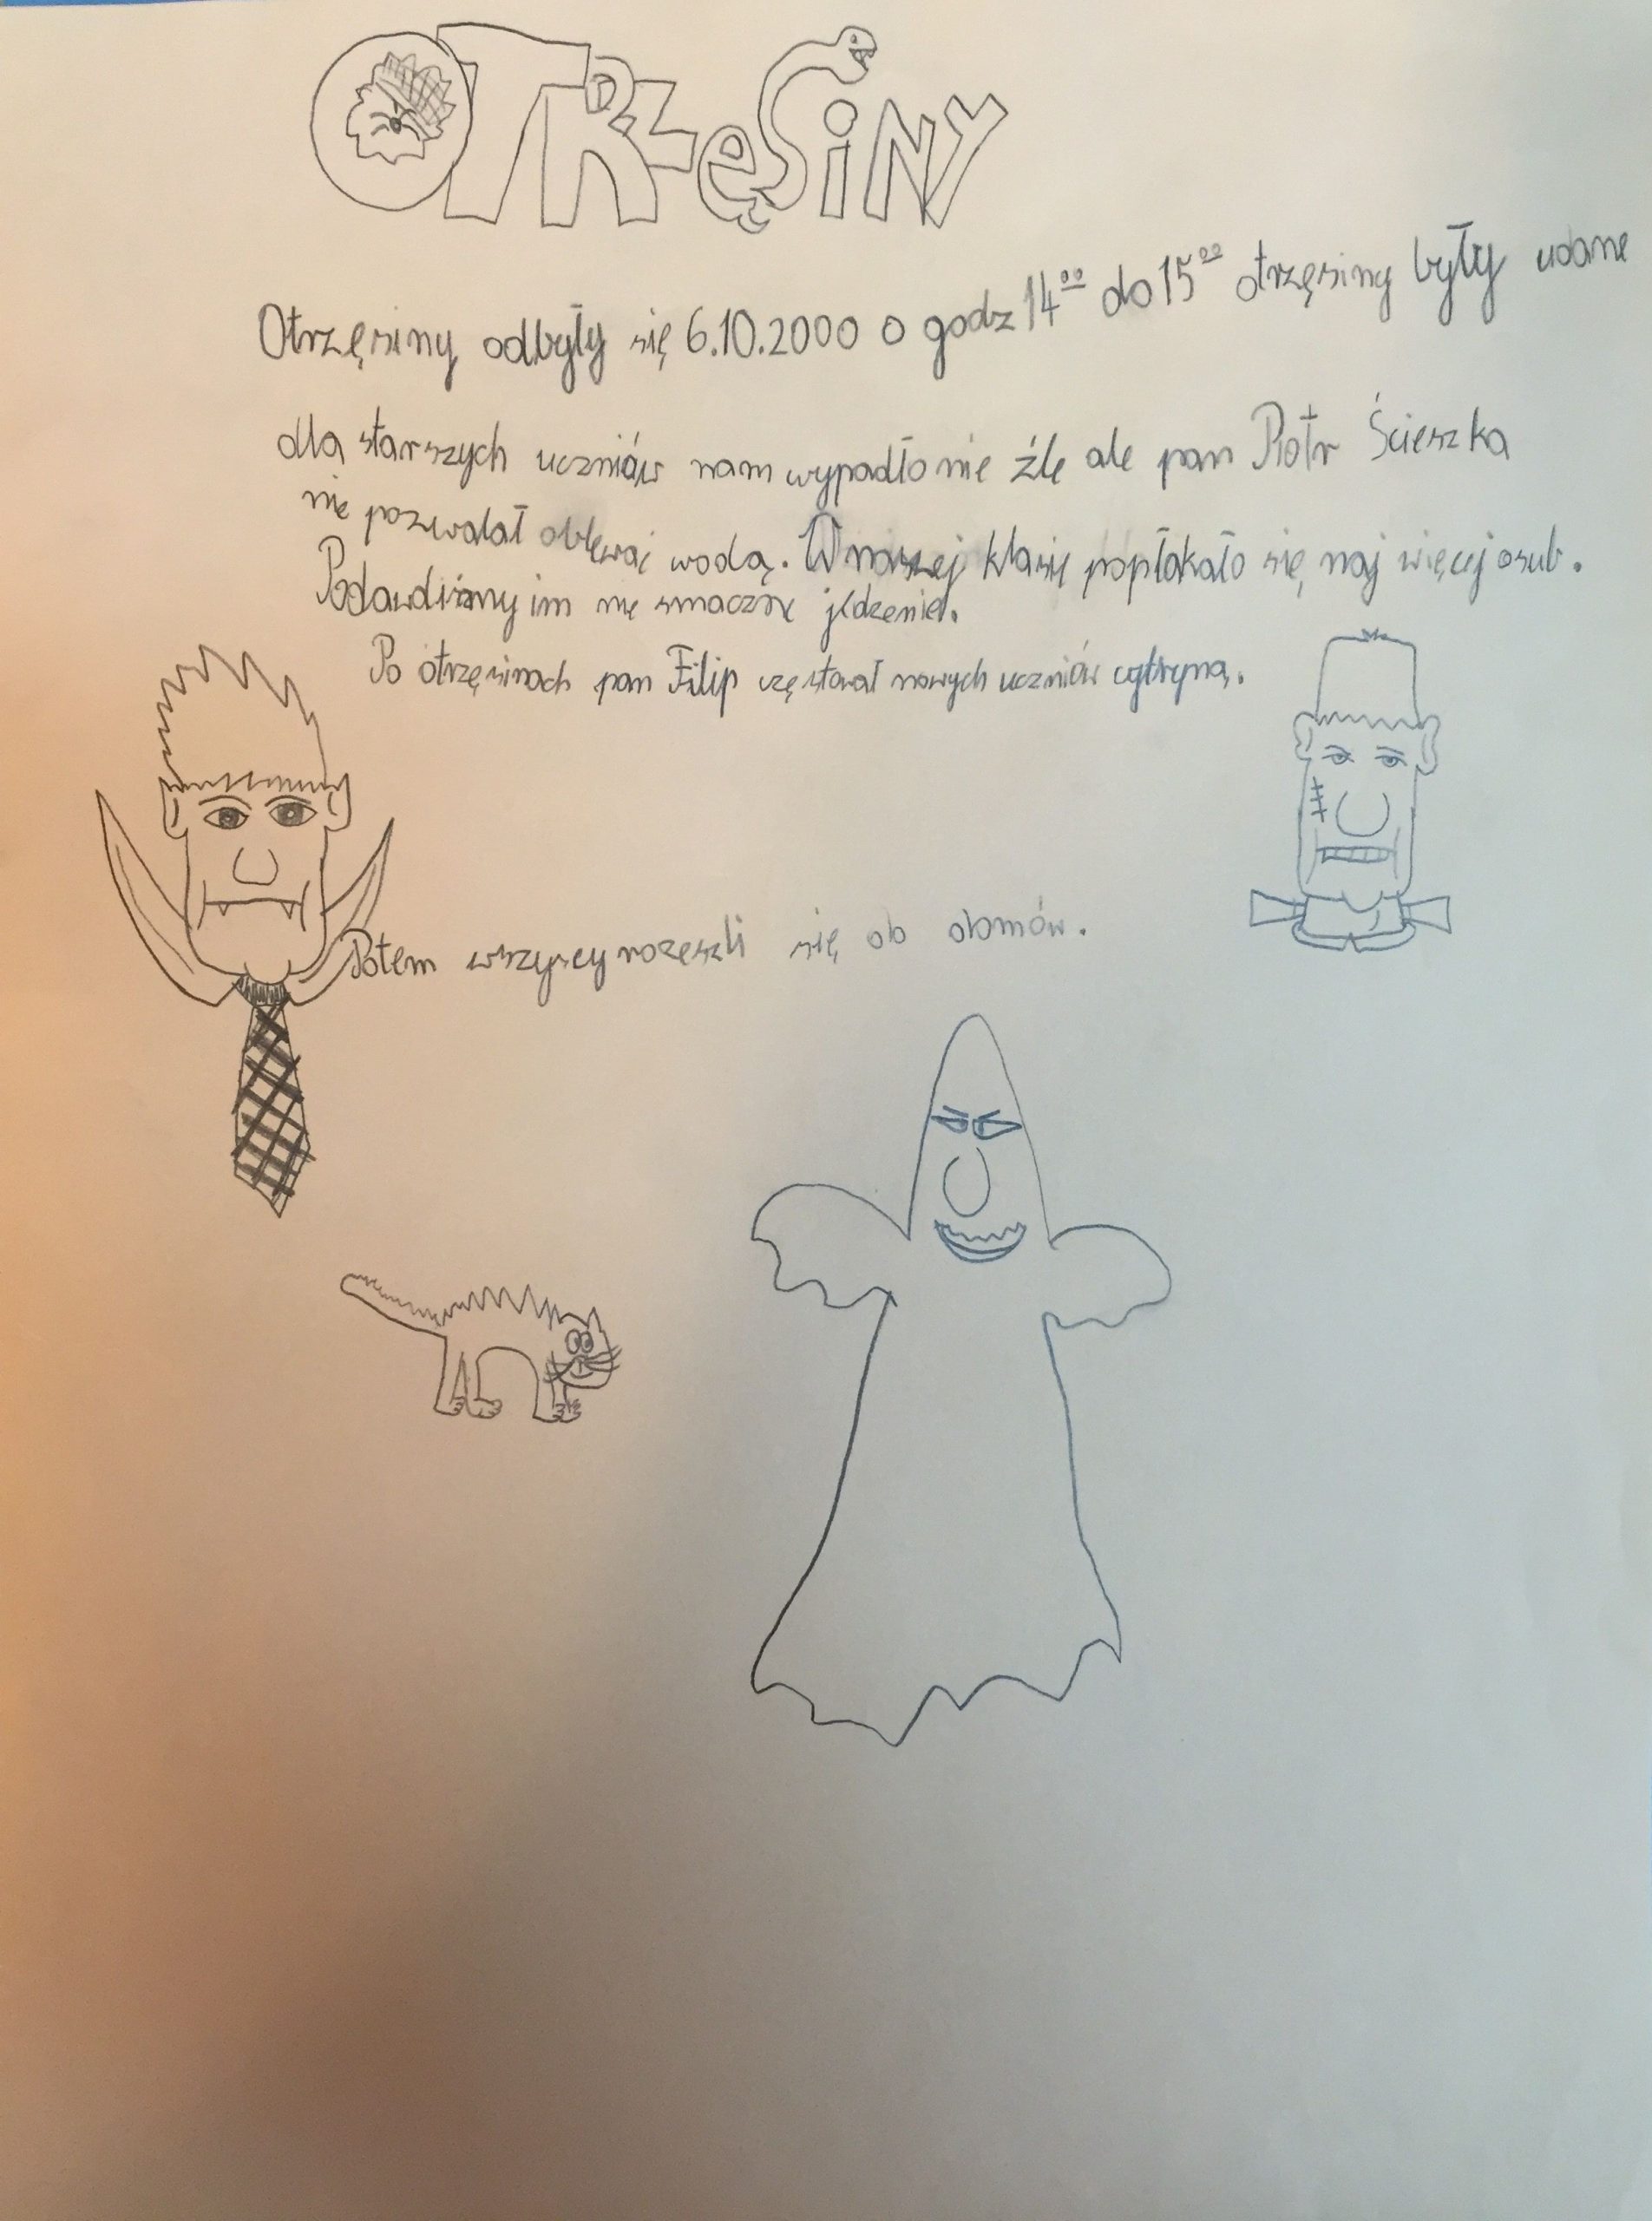 OTRZĘSINY
Otrzęsiny odbyły się 6.10.2000 o godz 14⁰⁰ do 15⁰⁰ otrzęsiny były udane
dla starszych uczniów nam wypadło nie źle ale pan Piotr Ścieszka
nie pozwalał oblewać wodą. W naszej klasie popłakało się naj więcej osub.
Podawaliśmy im nie smaczne jedzenie.
Po otrzęsinach pan Filip częstował nowych uczniów cytryną.
Potem wszyscy rozeszli się do domów.